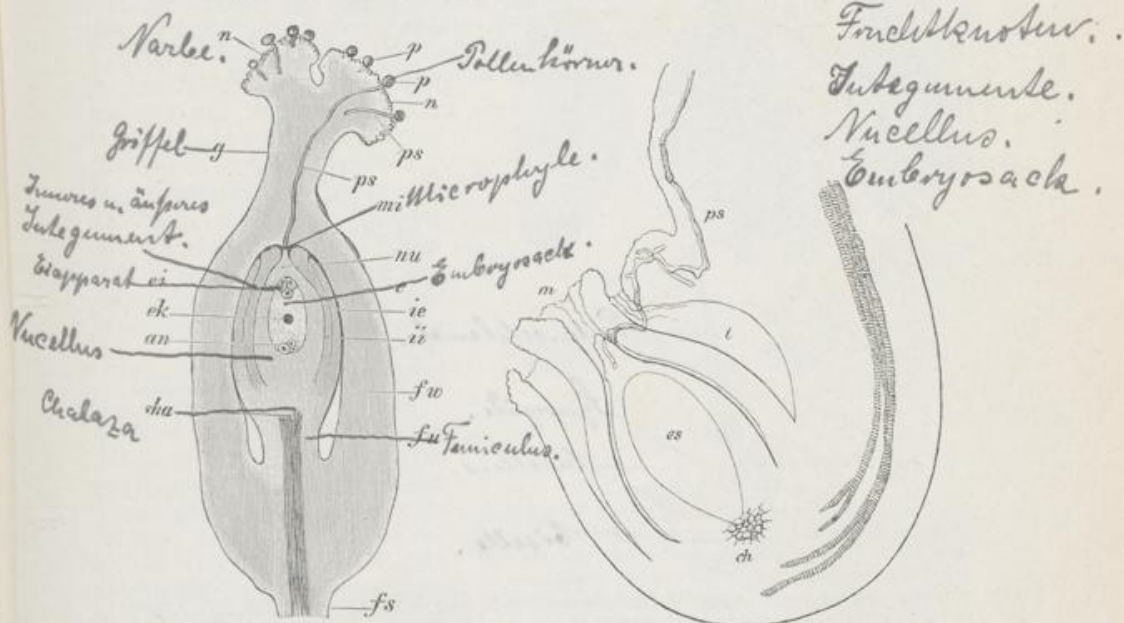 Narbe.
n
p
Pollenkörner.
p
n
Griffel
g
ps
ps
Inneres u. äußeres
Integument.
mi
Microphyle.
nu
Eiapparat
ei
Embryosack.
e
ek
ie
an
ii
Nucellus
fw
Chalaza
cha
fu
Funiculus.
fs
Fruchtknoten.
Integumente.
Nucellus.
Embryosack.
ps
m
t
es
ch